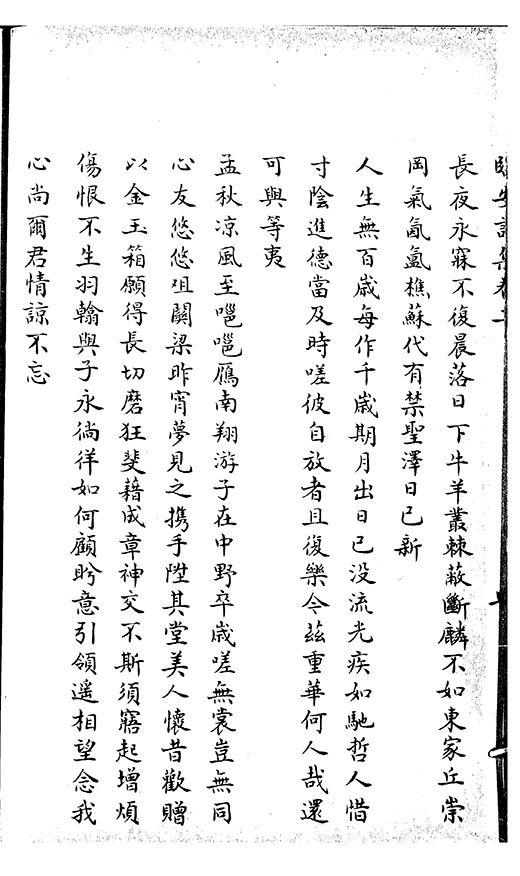 長夜永寐不復晨落日下牛羊叢棘蔽斷麟不如東家丘崇
岡氣氤氳樵蘇代有禁聖澤日已新
人生無百歲每作千歲期月出日已没流光疾如馳哲人惜
寸陰進德當及時嗟彼自放者且復樂今茲重華何人哉還
可與等夷
孟秋凉風至嗈嗈鴈南翔游子在中野卒歲嗟無裳豈無同
心友悠悠阻關梁昨宵夢見之携手陞其堂美人懷昔歡贈
以金玉箱願得長切磨狂斐藉成章神交不斯須寤起增煩
傷恨不生羽翰與子永徜徉如何顧眄意引領遥相望念我
心尚爾君情諒不忘